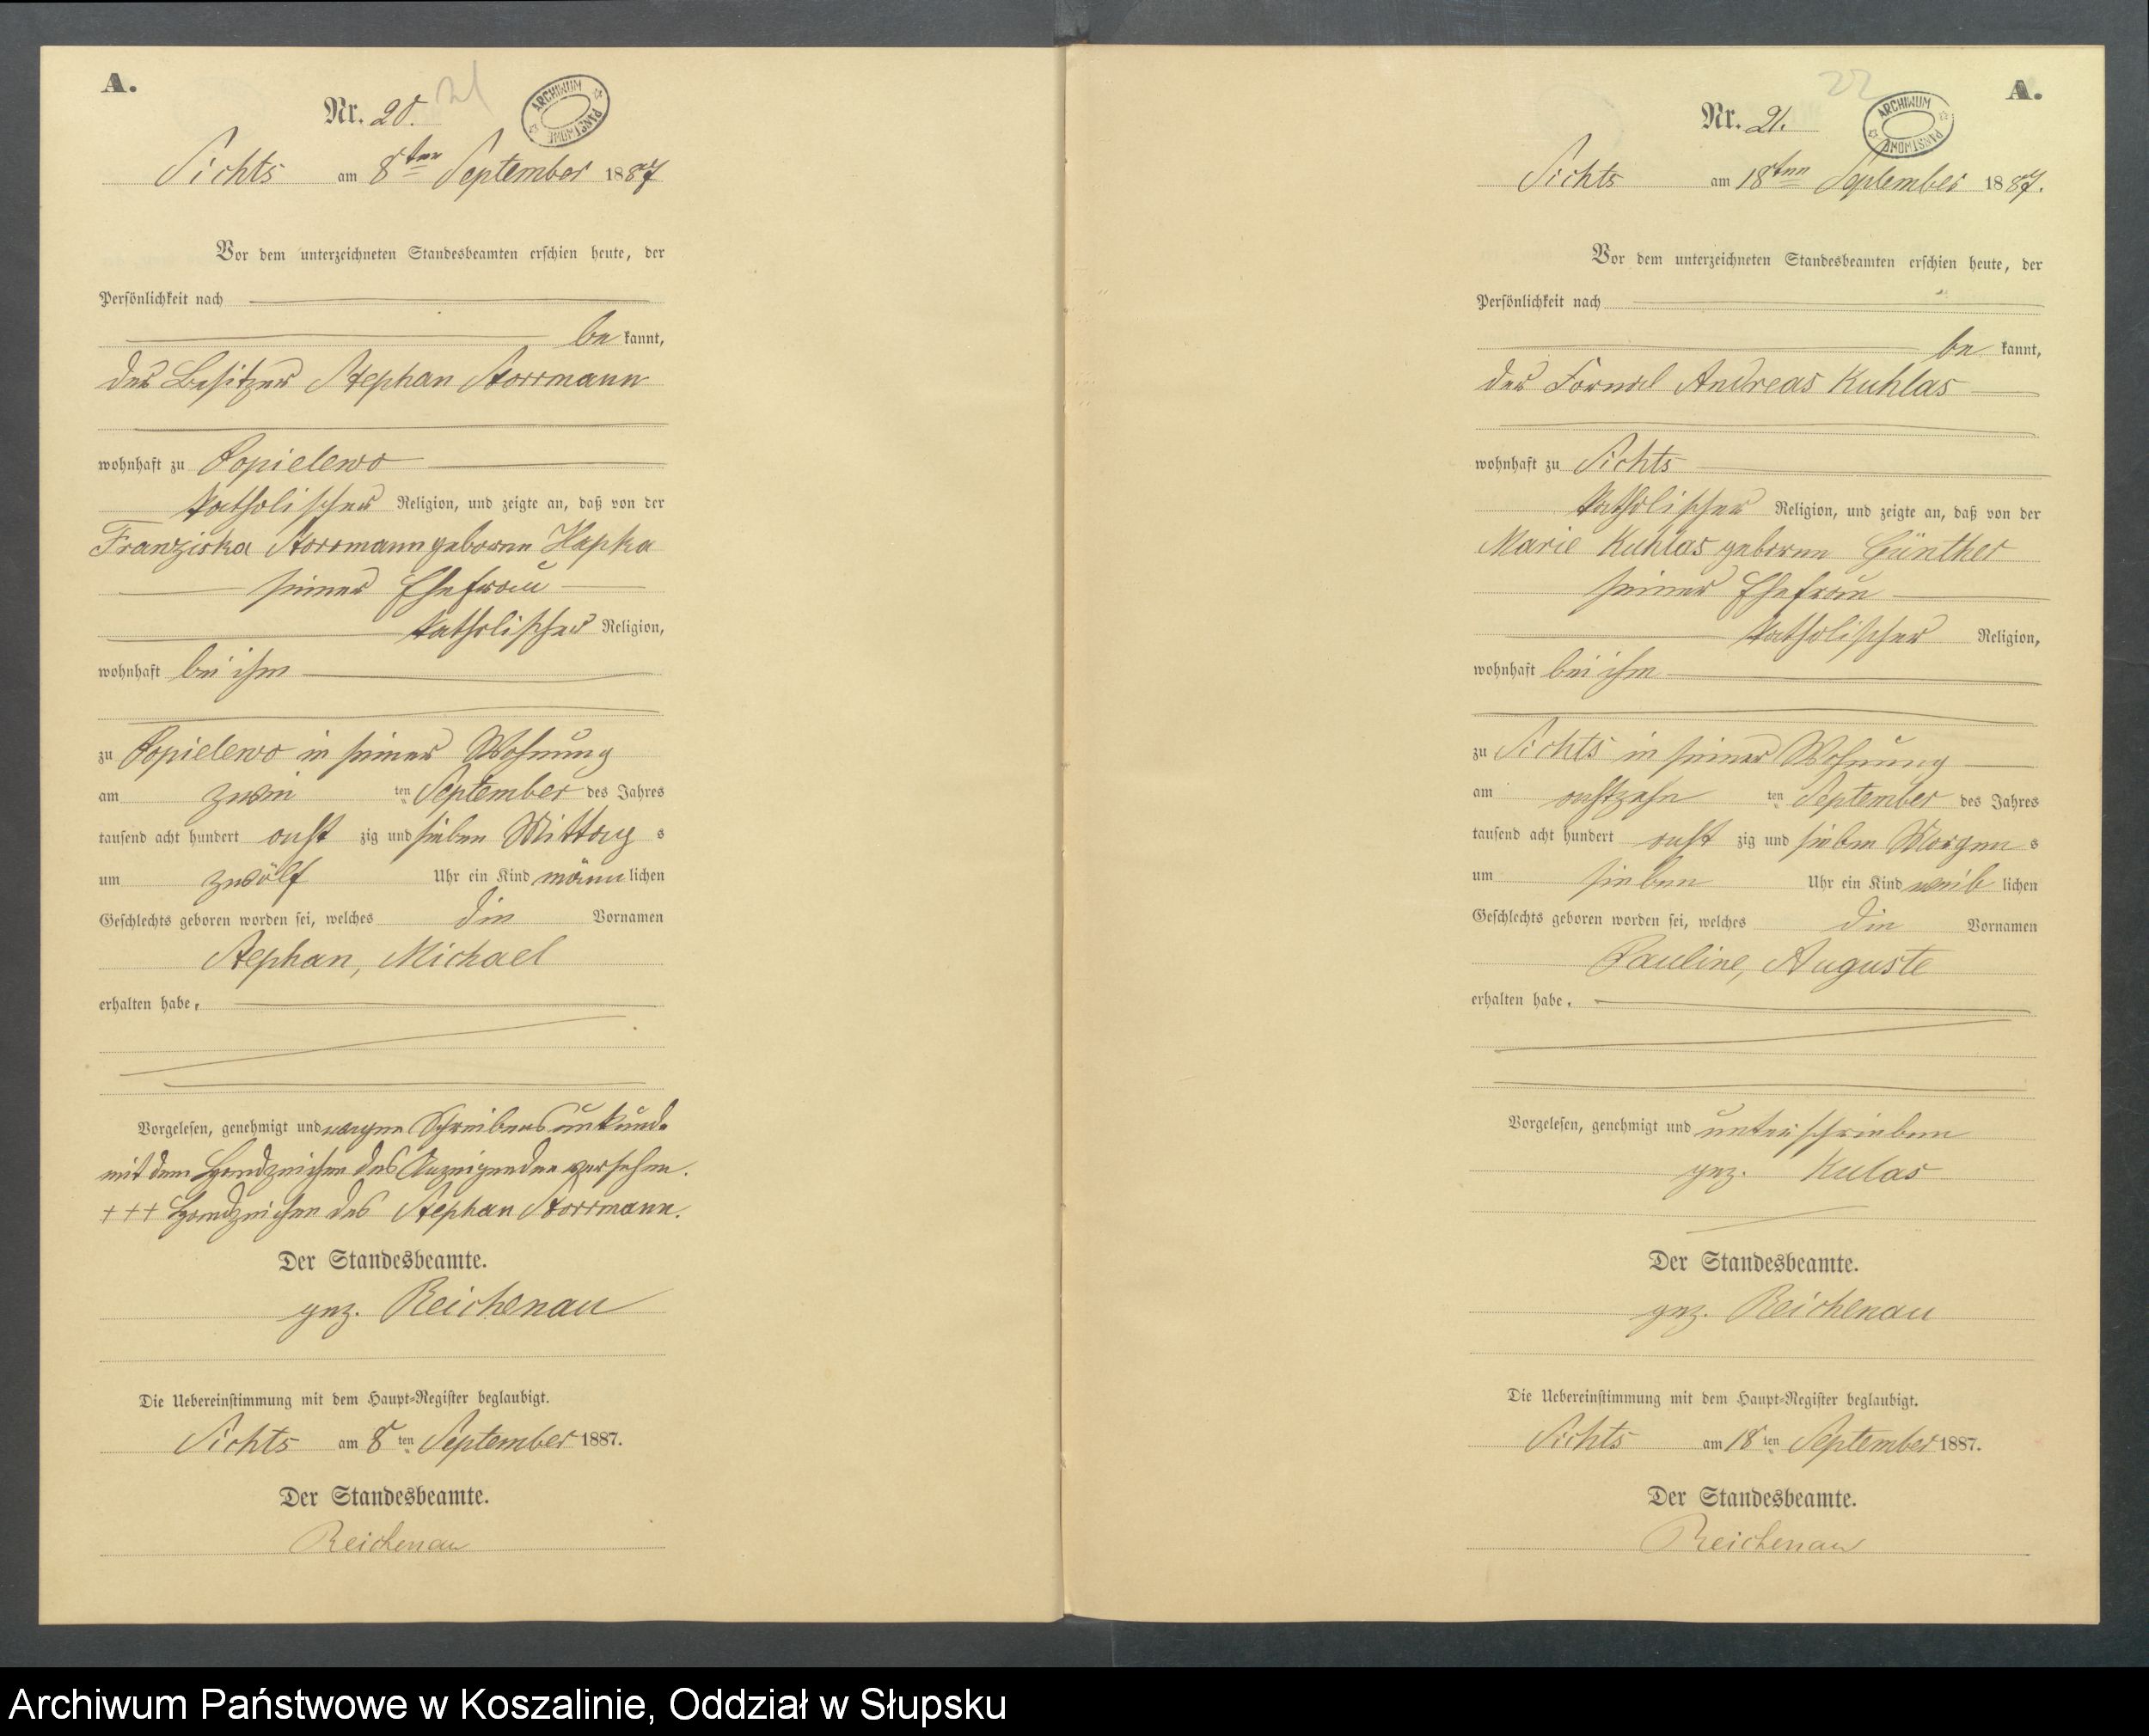 A.
Nr. 20.
21
ARCHIWUM PAŃSTWOWE
Sichts am 8ten September 1887
Vor dem unterzeichneten Standesbeamten erschien heute, der
Persönlichkeit nach
be kannt,
der Besitzer Stephan Storrmann
wohnhaft zu Popielewo
katholischer Religion, und zeigte an, daß von der
Franziska Storrmann geborne Hapka
seiner Ehefrau
katholischer Religion,
wohnhaft bei ihm
zu Popielewo in seiner Wohnung
am zwei ten September des Jahres
tausend acht hundert acht zig und sieben Mittag s
um zwölf Uhr ein Kind männ lichen
Geschlechts geboren worden sei, welches die Vornamen
Stephan, Michael
erhalten habe.
Vorgelesen, genehmigt und wegen Schreibensunkunde
mit dem Handzeichen des Anzeigenden versehen.
+++ Handzeichen des Stephan Storrmann.
Der Standesbeamte.
gez. Reichenau
Die Uebereinstimmung mit dem Haupt-Register beglaubigt.
Sichts am 8 ten September 1887.
Der Standesbeamte.
Reichenau
A.
22
Nr. 21.
ARCHIWUM PAŃSTWOWE
Sichts am 18ten September 1887.
Vor dem unterzeichneten Standesbeamten erschien heute, der
Persönlichkeit nach
be kannt,
der Fornal Andreas Kuhlas
wohnhaft zu Sichts
katholischer Religion, und zeigte an, daß von der
Marie Kuhlas geborne Günther
seiner Ehefrau
katholischer Religion,
wohnhaft bei ihm
zu Sichts in seiner Wohnung
am achtzehn ten September des Jahres
tausend acht hundert acht zig und sieben Morgen s
um sieben Uhr ein Kind weib lichen
Geschlechts geboren worden sei, welches die Vornamen
Pauline, Auguste
erhalten habe.
Vorgelesen, genehmigt und unterschrieben
gez. Kulas
Der Standesbeamte.
gez. Reichenau
Die Uebereinstimmung mit dem Haupt-Register beglaubigt.
Sichts am 18 ten September 1887.
Der Standesbeamte.
Reichenau
Archiwum Państwowe w Koszalinie, Oddział w Słupsku